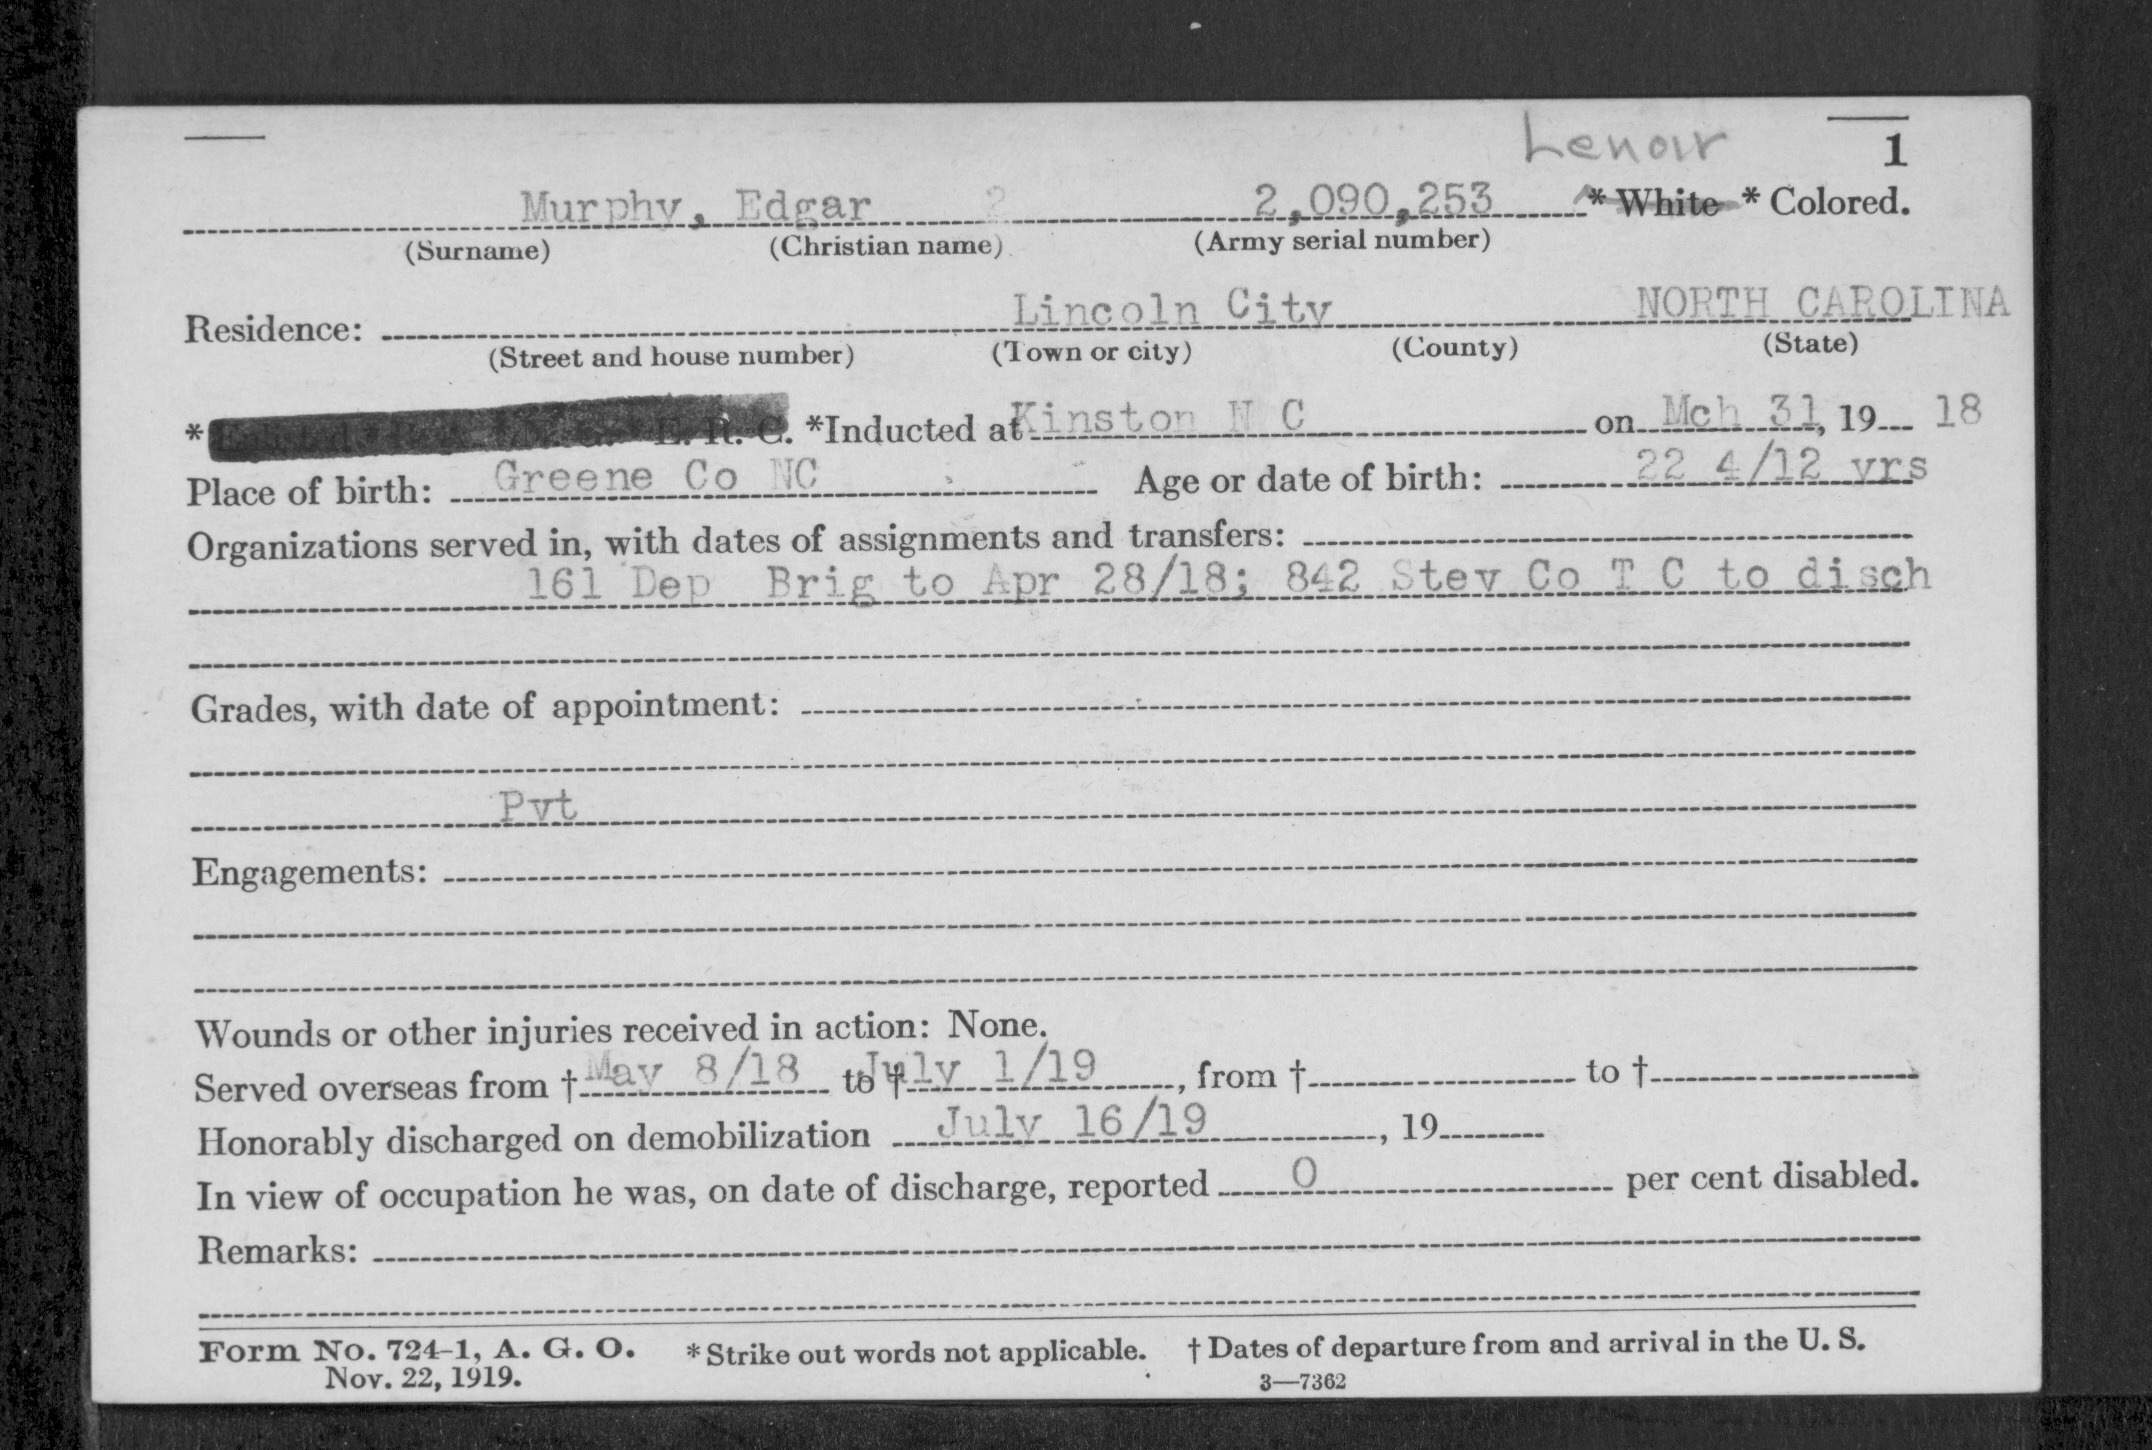 Lenoir 1
Murphy, Edgar 2 2,090,253 * White * Colored.
(Surname) (Christian name) (Army serial number)
Lincoln City NORTH CAROLINA
Residence:
(Street and house number) (Town or city) (County) (State)
* Enlisted E. R. C. *Inducted at Kinston N C on Mch 31, 19 18
Place of birth: Greene Co NC Age or date of birth: 22 4/12 yrs
Organizations served in, with dates of assignments and transfers:
161 Dep Brig to Apr 28/18; 842 Stev Co T C to disch
Grades, with date of appointment:
Pvt
Engagements:
Wounds or other injuries received in action: None.
Served overseas from † May 8/18 to † July 1/19, from † to †
Honorably discharged on demobilization July 16/19, 19
In view of occupation he was, on date of discharge, reported 0 per cent disabled.
Remarks:
Form No. 724-1, A. G. O. * Strike out words not applicable. † Dates of departure from and arrival in the U. S.
Nov. 22, 1919. 3—7362